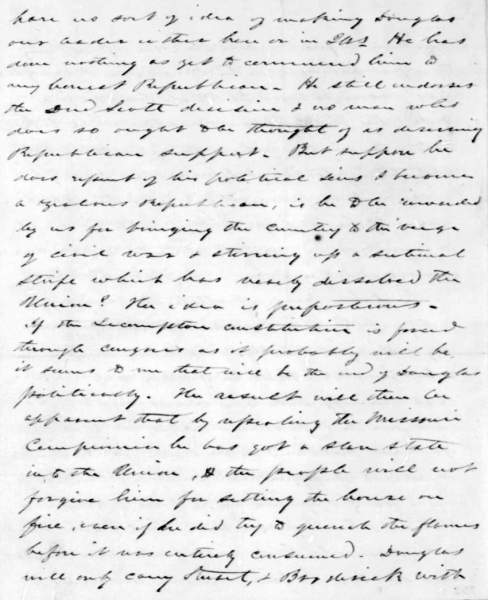 have no sort of idea of making Douglas
our leader either here or in Ills. He has
done nothing as yet to commend him to
any honest Republican. He still endorses
the Dred Scott decision & no man who
does so ought to be thought of as deserving
Republican support. But suppose he
does repent of his political sins & become
a zealous Republican, is he to be rewarded
by us for bringing the country to the verge
of civil war & stirring up a sectional
strife which has nearly dissolved the
Union? The idea is preposterous.
If the Lecompton constitution is forced
through congress as it probably will be,
it seems to me that will be the end of Douglas
politically. The result will then be
apparent that by repealing the Missouri
Compromise he has got a slave state
into the Union, & the people will not
forgive him for setting the house on
fire, even if he did try to quench the flames
before it was entirely consumed. Douglas
will only carry Stuart, & Broderick with